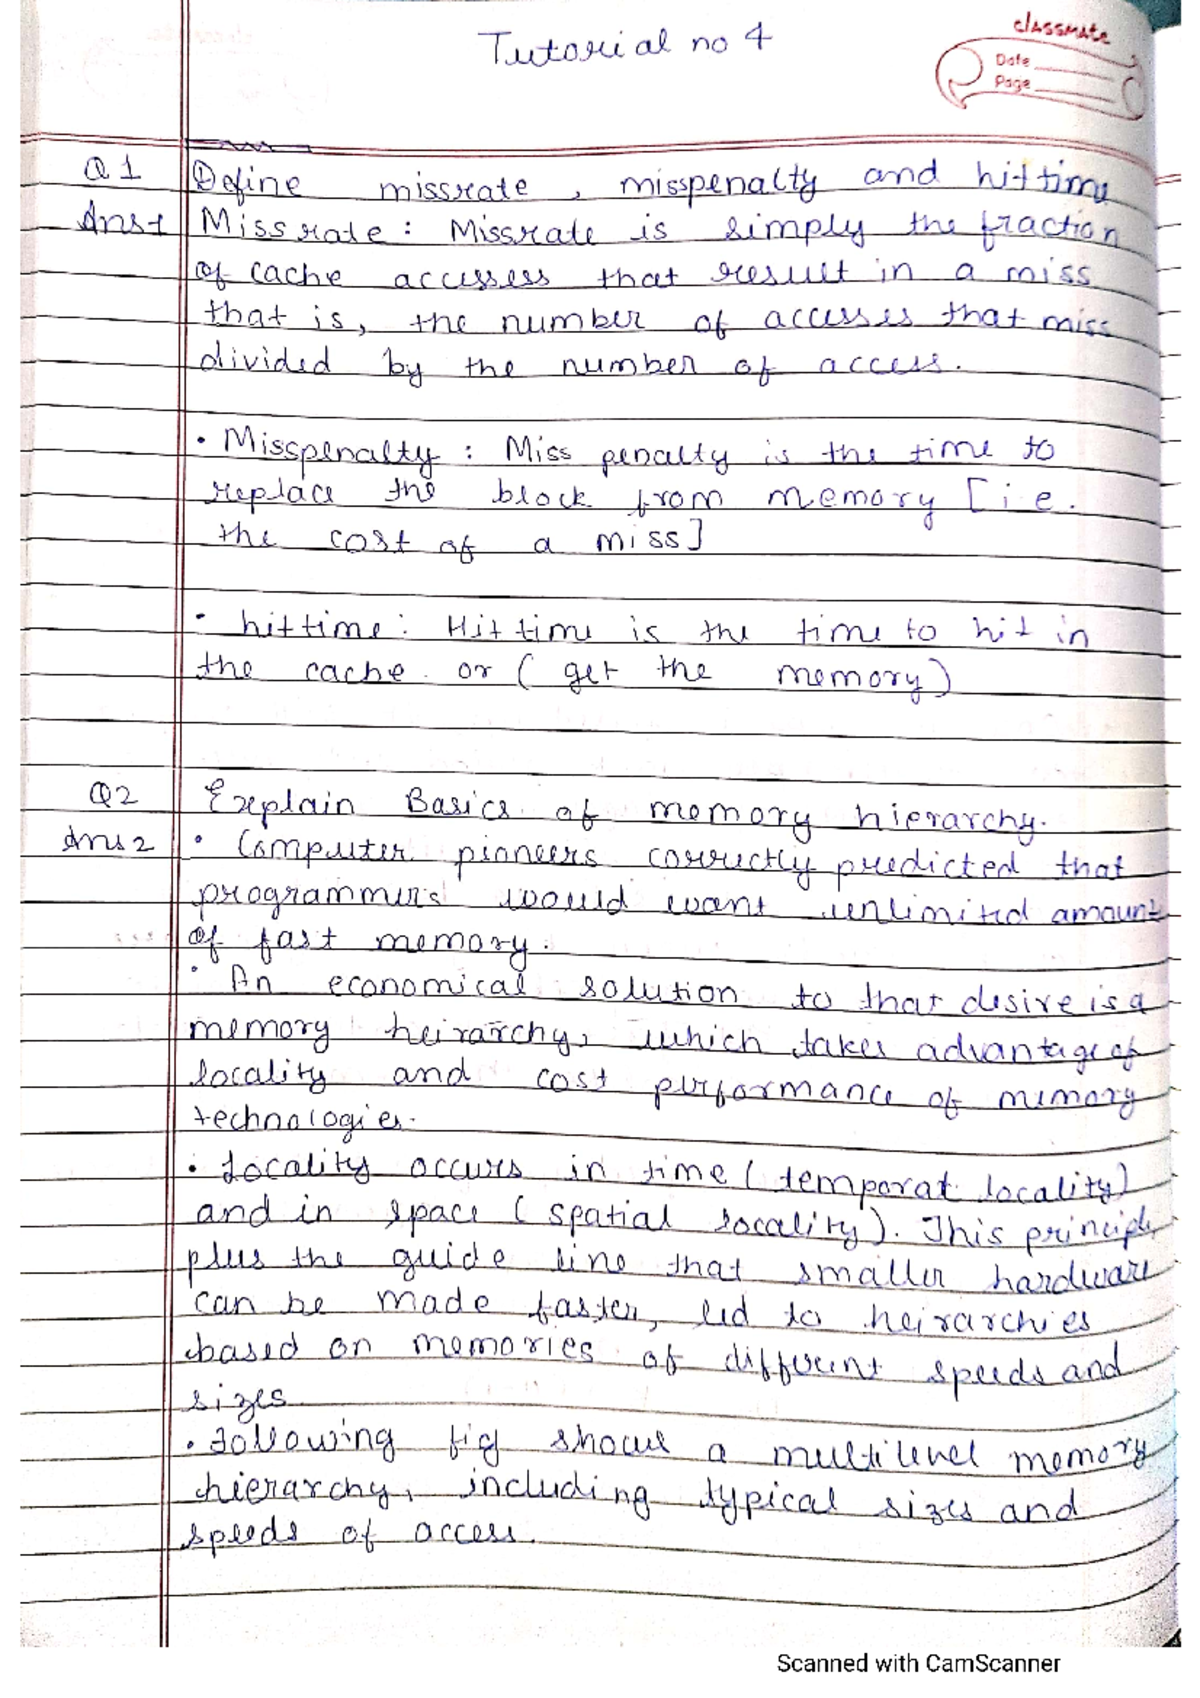 Tutorial no 4
classmate
Date
Page
Q1 Define missrate, misspenalty and hit time
Ans1 Missrate: Missrate is simply the fraction
of cache accessess that result in a miss
that is, the number of accesses that miss
divided by the number of access.
• Misspenalty: Miss penalty is the time to
replace the block from memory [i e.
the cost of a miss]
• hit time: Hit time is the time to hit in
the cache or (get the memory)
Q2 Explain Basics of memory hierarchy.
Ans 2 • Computer pioneers correctly predicted that
programmers would want unlimited amount
of fast memory.
• An economical solution to that desire is a
memory heirarchy, which takes advantage of
locality and cost performance of memory
technologies.
• Locality occurs in time (temporat locality)
and in space (spatial locality). This principle
plus the guide line that smaller hardware
can be made faster, led to heirarchies
based on memories of different speeds and
sizes
• Following fig shows a multilevel memory
hierarchy, including typical sizes and
speeds of access.
Scanned with CamScanner